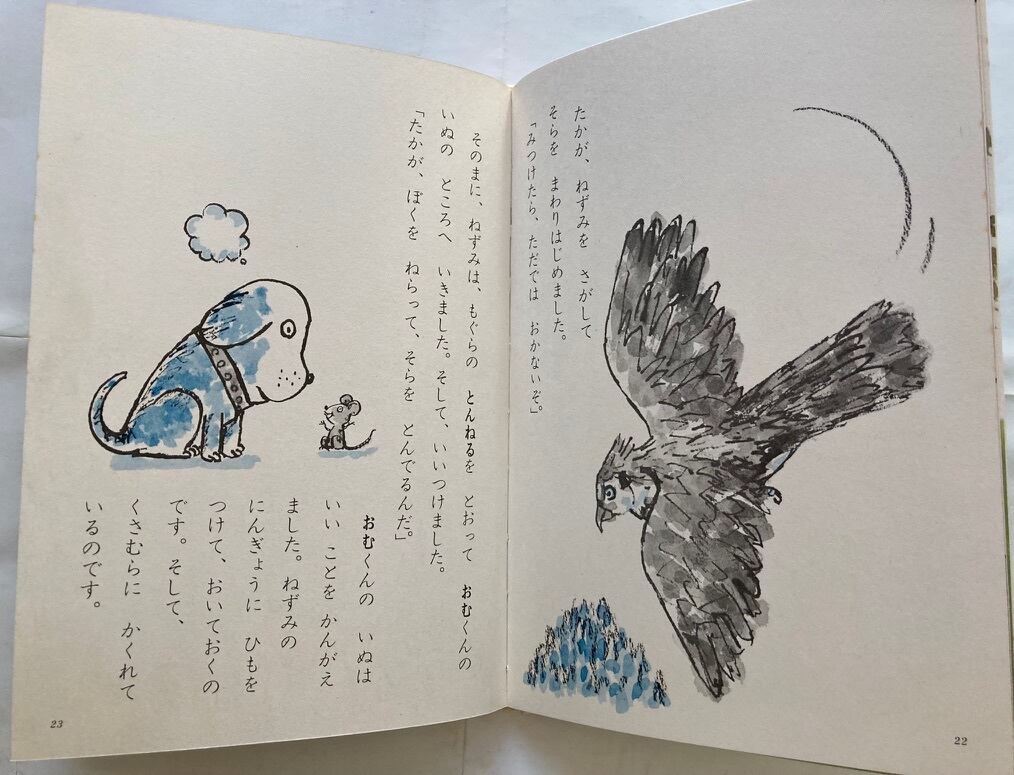 たかが、ねずみを　さがして
そらを　まわりはじめました。
「みつけたら、ただでは　おかないぞ。」
22
そのまに、ねずみは、もぐらの　とんねるを　とおって　おむくんの
いぬの　ところへ　いきました。そして、いいつけました。
「たかが、ぼくを　ねらって、そらを　とんでるんだ。」
おむくんの　いぬは
いい　ことを　かんがえ
ました。ねずみの
にんぎょうに　ひもを
つけて、おいておくの
です。そして、
くさむらに　かくれて
いるのです。
23